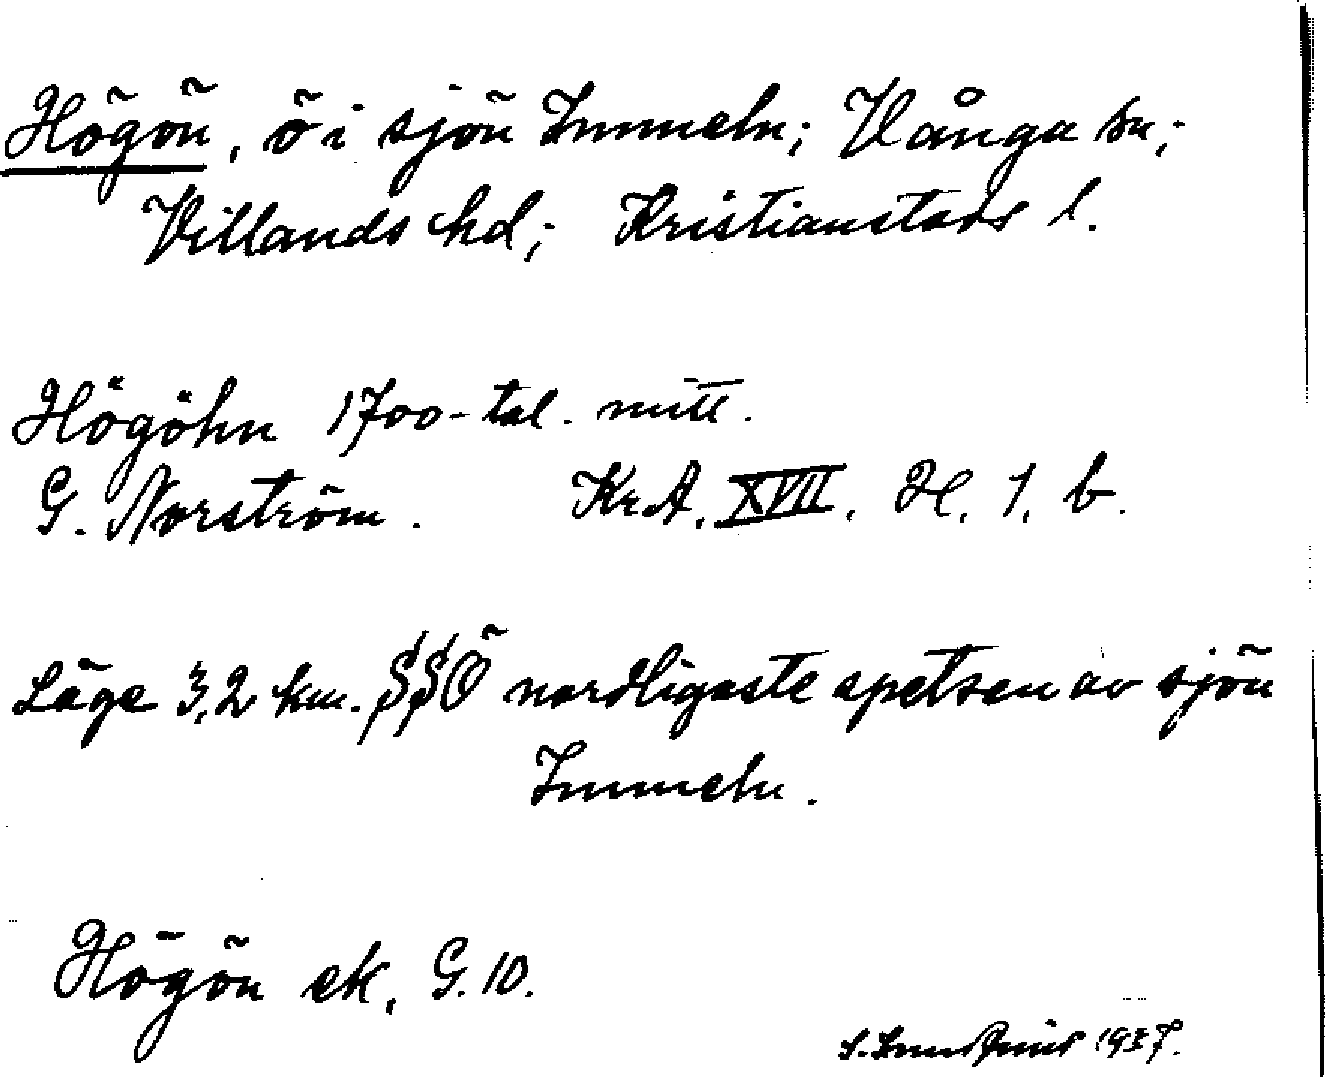 Högön, ö i sjön Immeln; Vånga sn;
Villands hd; Kristianstads l.
Högöhn 1700-tal. mitt.
G. Norström. KrA. XVII. H. 1. b.
Läge 3,2 km. SSÖ nordligaste spetsen av sjön
Immeln.
Högön ek. G. 10.
1937.